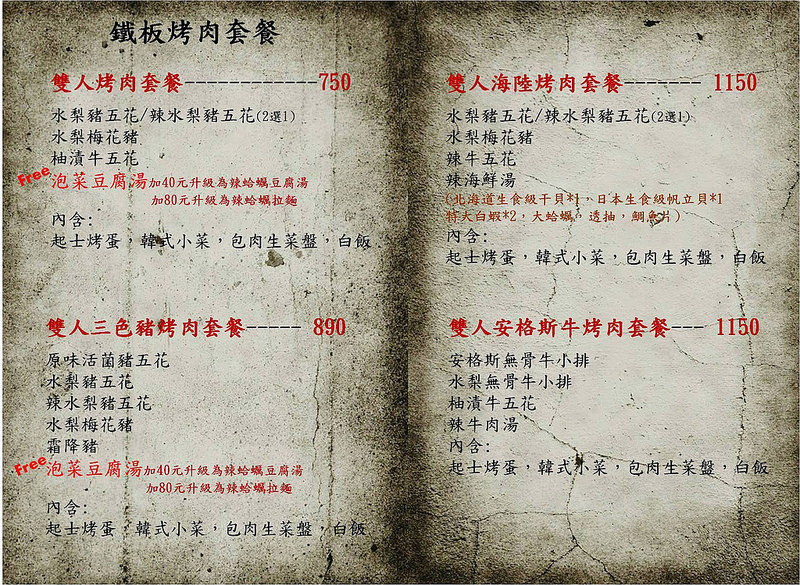 鐵板烤肉套餐
雙人烤肉套餐-------------750
水梨豬五花/辣水梨豬五花(2選1)
水梨梅花豬
柚漬牛五花
Free泡菜豆腐湯加40元升級為辣蛤蠣豆腐湯
加80元升級為辣蛤蠣拉麵
內含:
起士烤蛋，韓式小菜，包肉生菜盤，白飯
雙人三色豬烤肉套餐----- 890
原味活菌豬五花
水梨豬五花
辣水梨豬五花
水梨梅花豬
霜降豬
Free泡菜豆腐湯加40元升級為辣蛤蠣豆腐湯
加80元升級為辣蛤蠣拉麵
內含:
起士烤蛋，韓式小菜，包肉生菜盤，白飯
雙人海陸烤肉套餐------- 1150
水梨豬五花/辣水梨豬五花(2選1)
水梨梅花豬
辣牛五花
辣海鮮湯
(北海道生食級干貝*1，日本生食級帆立貝*1
特大白蝦*2，大蛤蠣，透抽，鯛魚片)
內含:
起士烤蛋，韓式小菜，包肉生菜盤，白飯
雙人安格斯牛烤肉套餐--- 1150
安格斯無骨牛小排
水梨無骨牛小排
柚漬牛五花
辣牛肉湯
內含:
起士烤蛋，韓式小菜，包肉生菜盤，白飯